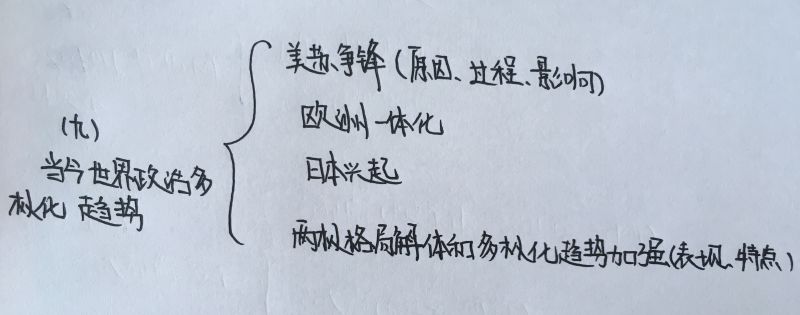 (九)
当今世界政治多
极化趋势
美苏争锋(原因、过程、影响)
欧洲一体化
日本兴起
两极格局解体和多极化趋势加强(表现、特点)